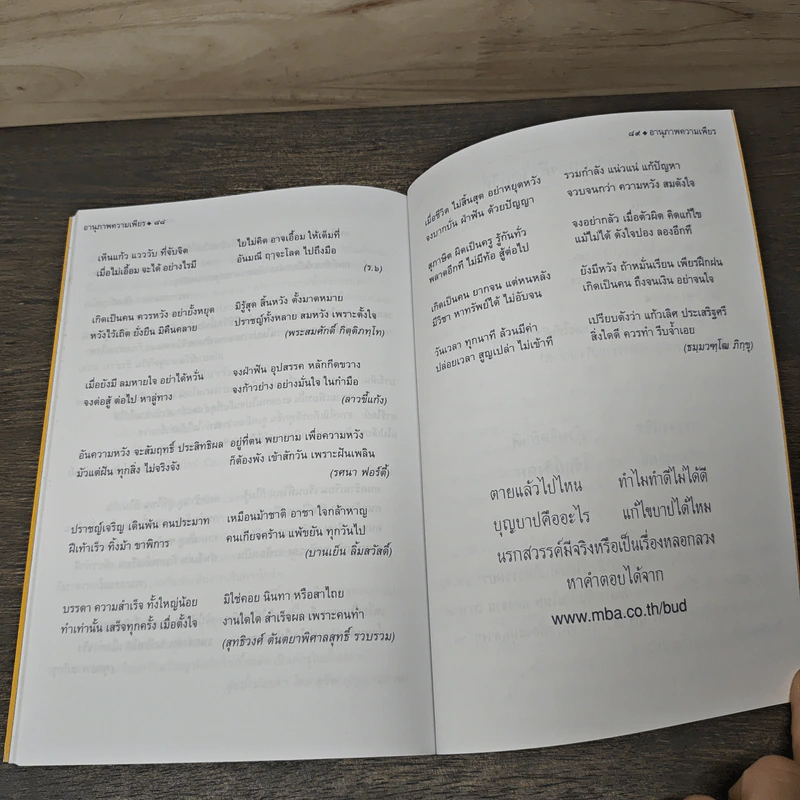 อานุภาพความเพียร ◆ ๘๘
เห็นแก้ว แวววับ ที่จับจิต ไยไม่คิด อาจเอื้อม ให้เต็มที่
เมื่อไม่เอื้อม จะได้ อย่างไรมี อันมณี ฤๅจะโลด ไปถึงมือ
(ร.๖)
เกิดเป็นคน ควรหวัง อย่ายั้งหยุด มีรู้สุด สิ้นหวัง ตั้งมาดหมาย
หวังไว้เถิด ยั่งยืน มิคืนคลาย ปราชญ์ทั้งหลาย สมหวัง เพราะตั้งใจ
(พระสมศักดิ์ กิตติภทฺโท)
เมื่อยังมี ลมหายใจ อย่าได้หวั่น จงฝ่าฟัน อุปสรรค หลักกีดขวาง
จงต่อสู้ ต่อไป หาลู่ทาง จงก้าวย่าง อย่างมั่นใจ ในกำมือ
(ลาวขี้แก้ง)
อันความหวัง จะสัมฤทธิ์ ประสิทธิผล อยู่ที่ตน พยายาม เพื่อความหวัง
มัวแต่ฝัน ทุกสิ่ง ไม่จริงจัง ก็ต้องพัง เข้าสักวัน เพราะฝันเพลิน
(รศนา ฟอร์ตี้)
ปราชญ์เจริญ เดินพ้น คนประมาท เหมือนม้าชาติ อาชา ใจกล้าหาญ
ฝีเท้าเร็ว ทิ้งม้า ขาพิการ คนเกียจคร้าน แพ้ขยัน ทุกวันไป
(บานเย็น ลิ้มสวัสดิ์)
บรรดา ความสำเร็จ ทั้งใหญ่น้อย มิใช่คอย นินทา หรือสาไถย
ทำเท่านั้น เสร็จทุกครั้ง เมื่อตั้งใจ งานใดใด สำเร็จผล เพราะคนทำ
(สุทธิวงศ์ ตันตยาพิศาลสุทธิ์ รวบรวม)
๘๙ ◆ อานุภาพความเพียร
เมื่อชีวิต ไม่สิ้นสุด อย่าหยุดหวัง รวมกำลัง แน่วแน่ แก้ปัญหา
จงบากบั่น ฝ่าฟัน ด้วยปัญญา จวบจนกว่า ความหวัง สมดังใจ
สุภาษิต ผิดเป็นครู รู้กันทั่ว จงอย่ากลัว เมื่อตัวผิด คิดแก้ไข
พลาดอีกที ไม่มีท้อ สู้ต่อไป แม้ไม่ได้ ดังใจปอง ลองอีกที
เกิดเป็นคน ยากจน แต่หนหลัง ยังมีหวัง ถ้าหมั่นเรียน เพียรฝึกฝน
มีวิชา หาทรัพย์ได้ ไม่อับจน เกิดเป็นคน ถึงจนเงิน อย่าจนใจ
วันเวลา ทุกนาที ล้วนมีค่า เปรียบดังว่า แก้วเลิศ ประเสริฐศรี
ปล่อยเวลา สูญเปล่า ไม่เข้าที สิ่งใดดี ควรทำ รีบจ้ำเอย
(ธมฺมวฑฺโฒ ภิกฺขุ)
ตายแล้วไปไหน ทำไมทำดีไม่ได้ดี
บุญบาปคืออะไร แก้ไขบาปได้ไหม
นรกสวรรค์มีจริงหรือเป็นเรื่องหลอกลวง
หาคำตอบได้จาก
www.mba.co.th/bud